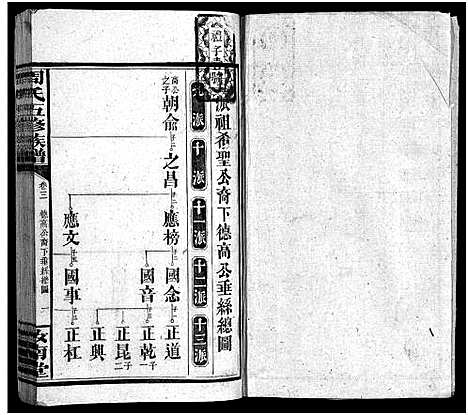 派祖希聖公裔下德高公垂絲總圖
九派
十派
十一派
十二派
十三派
高公之子
朝俞
之昌
應榜
國念
正道
國音
正乾
子一
正昆
子二
正興
應文
國事
正杠
周氏五修族譜
卷三
德高公裔下垂絲總圖
二
汝南堂